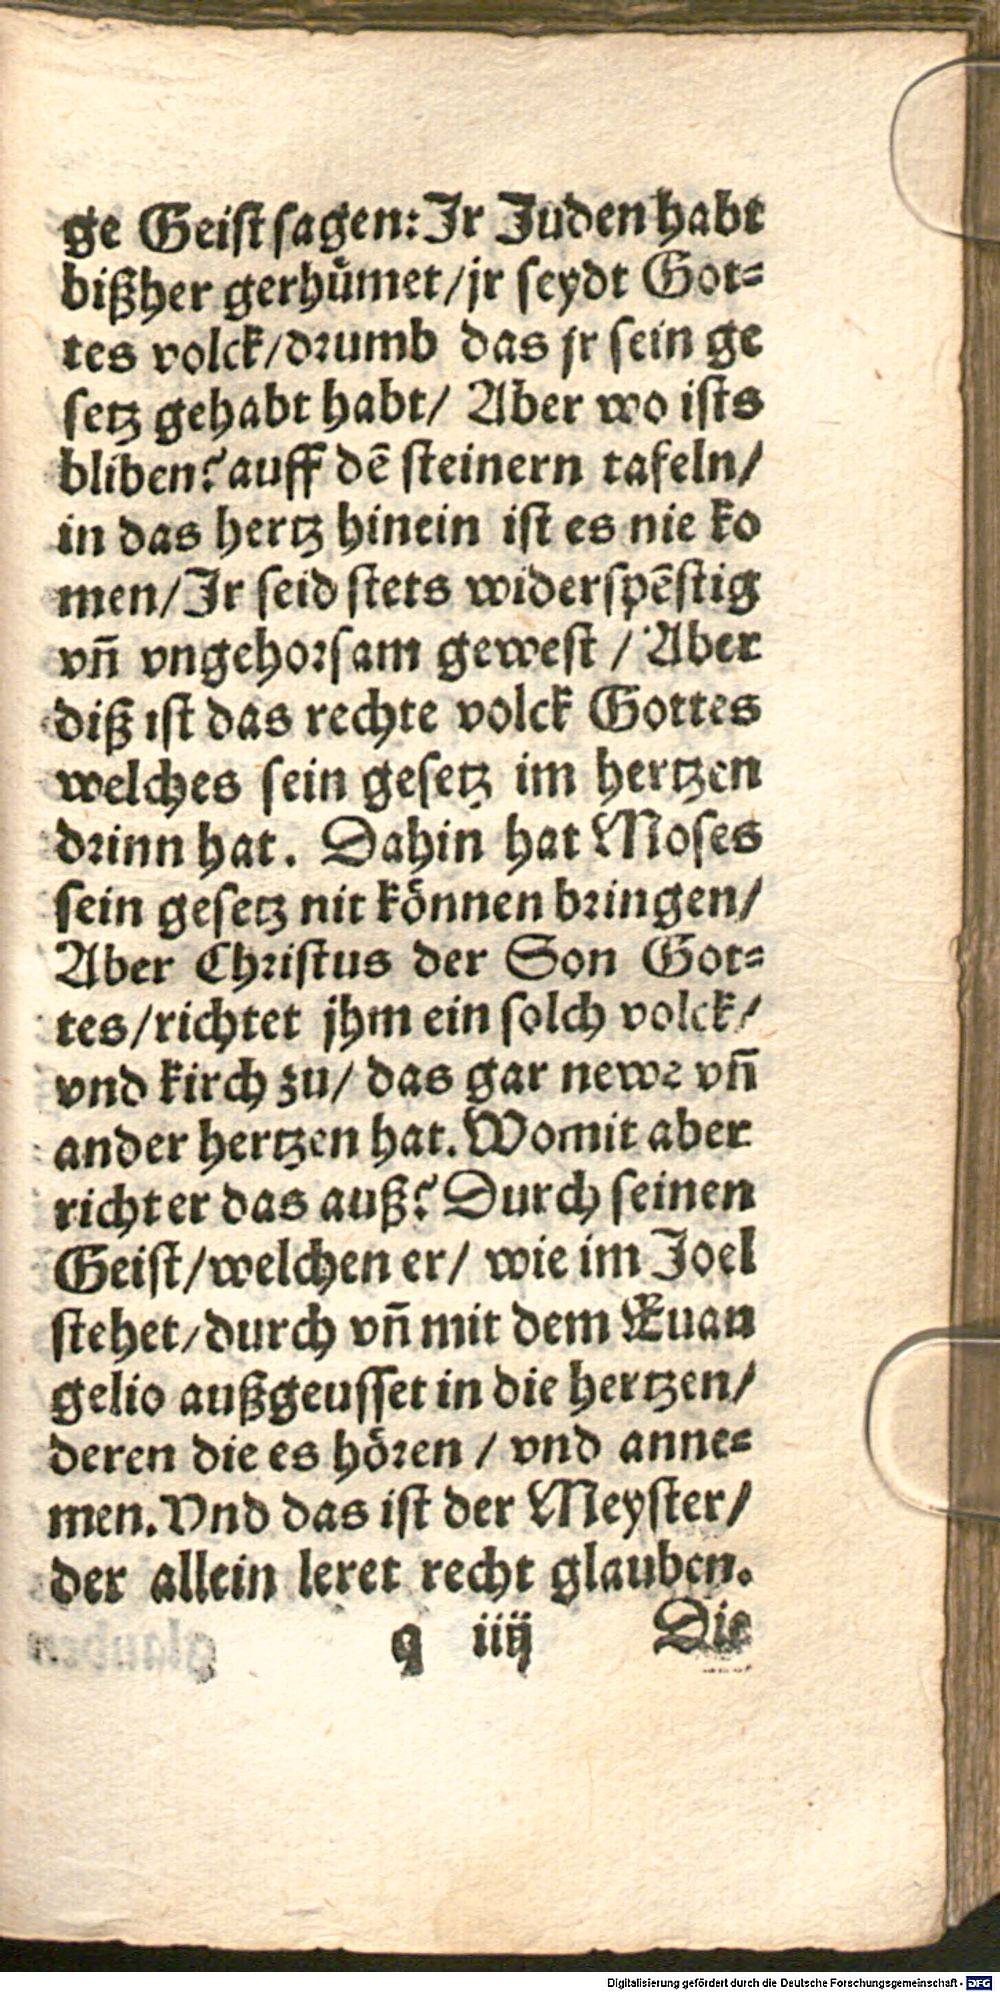 ge Geiſt ſagen: Jr Juden habt
bißher gerhuͤmet/ jr ſeydt Got⸗
tes volck/ drumb das jr ſein ge
ſetz gehabt habt/ Aber wo iſts
bliben? auff dē ſteinern tafeln/
in das hertz hinein iſt es nie ko
men/ Jr ſeid ſtets widerſpēſtig
vñ vngehorſam geweſt / Aber
diß iſt das rechte volck Gottes
welches ſein geſetz im hertzen
drinn hat. Dahin hat Moſes
ſein geſetz nit koͤnnen bringen/
Aber Chriſtus der Son Got⸗
tes/ richtet jhm ein ſolch volck/
vnd kirch zu/ das gar newe vñ
ander hertzen hat. Womit aber
richt er das auß? Durch ſeinen
Geiſt/ welchen er/ wie im Joel
ſtehet/ durch vñ mit dem Euan
gelio außgeuſſet in die hertzen/
deren die es hoͤren / vnd anne⸗
men. Vnd das iſt der Meyſter/
der allein leret recht glauben.
q iiij Die
Digitalisierung gefördert durch die Deutsche Forschungsgemeinschaft - DFG